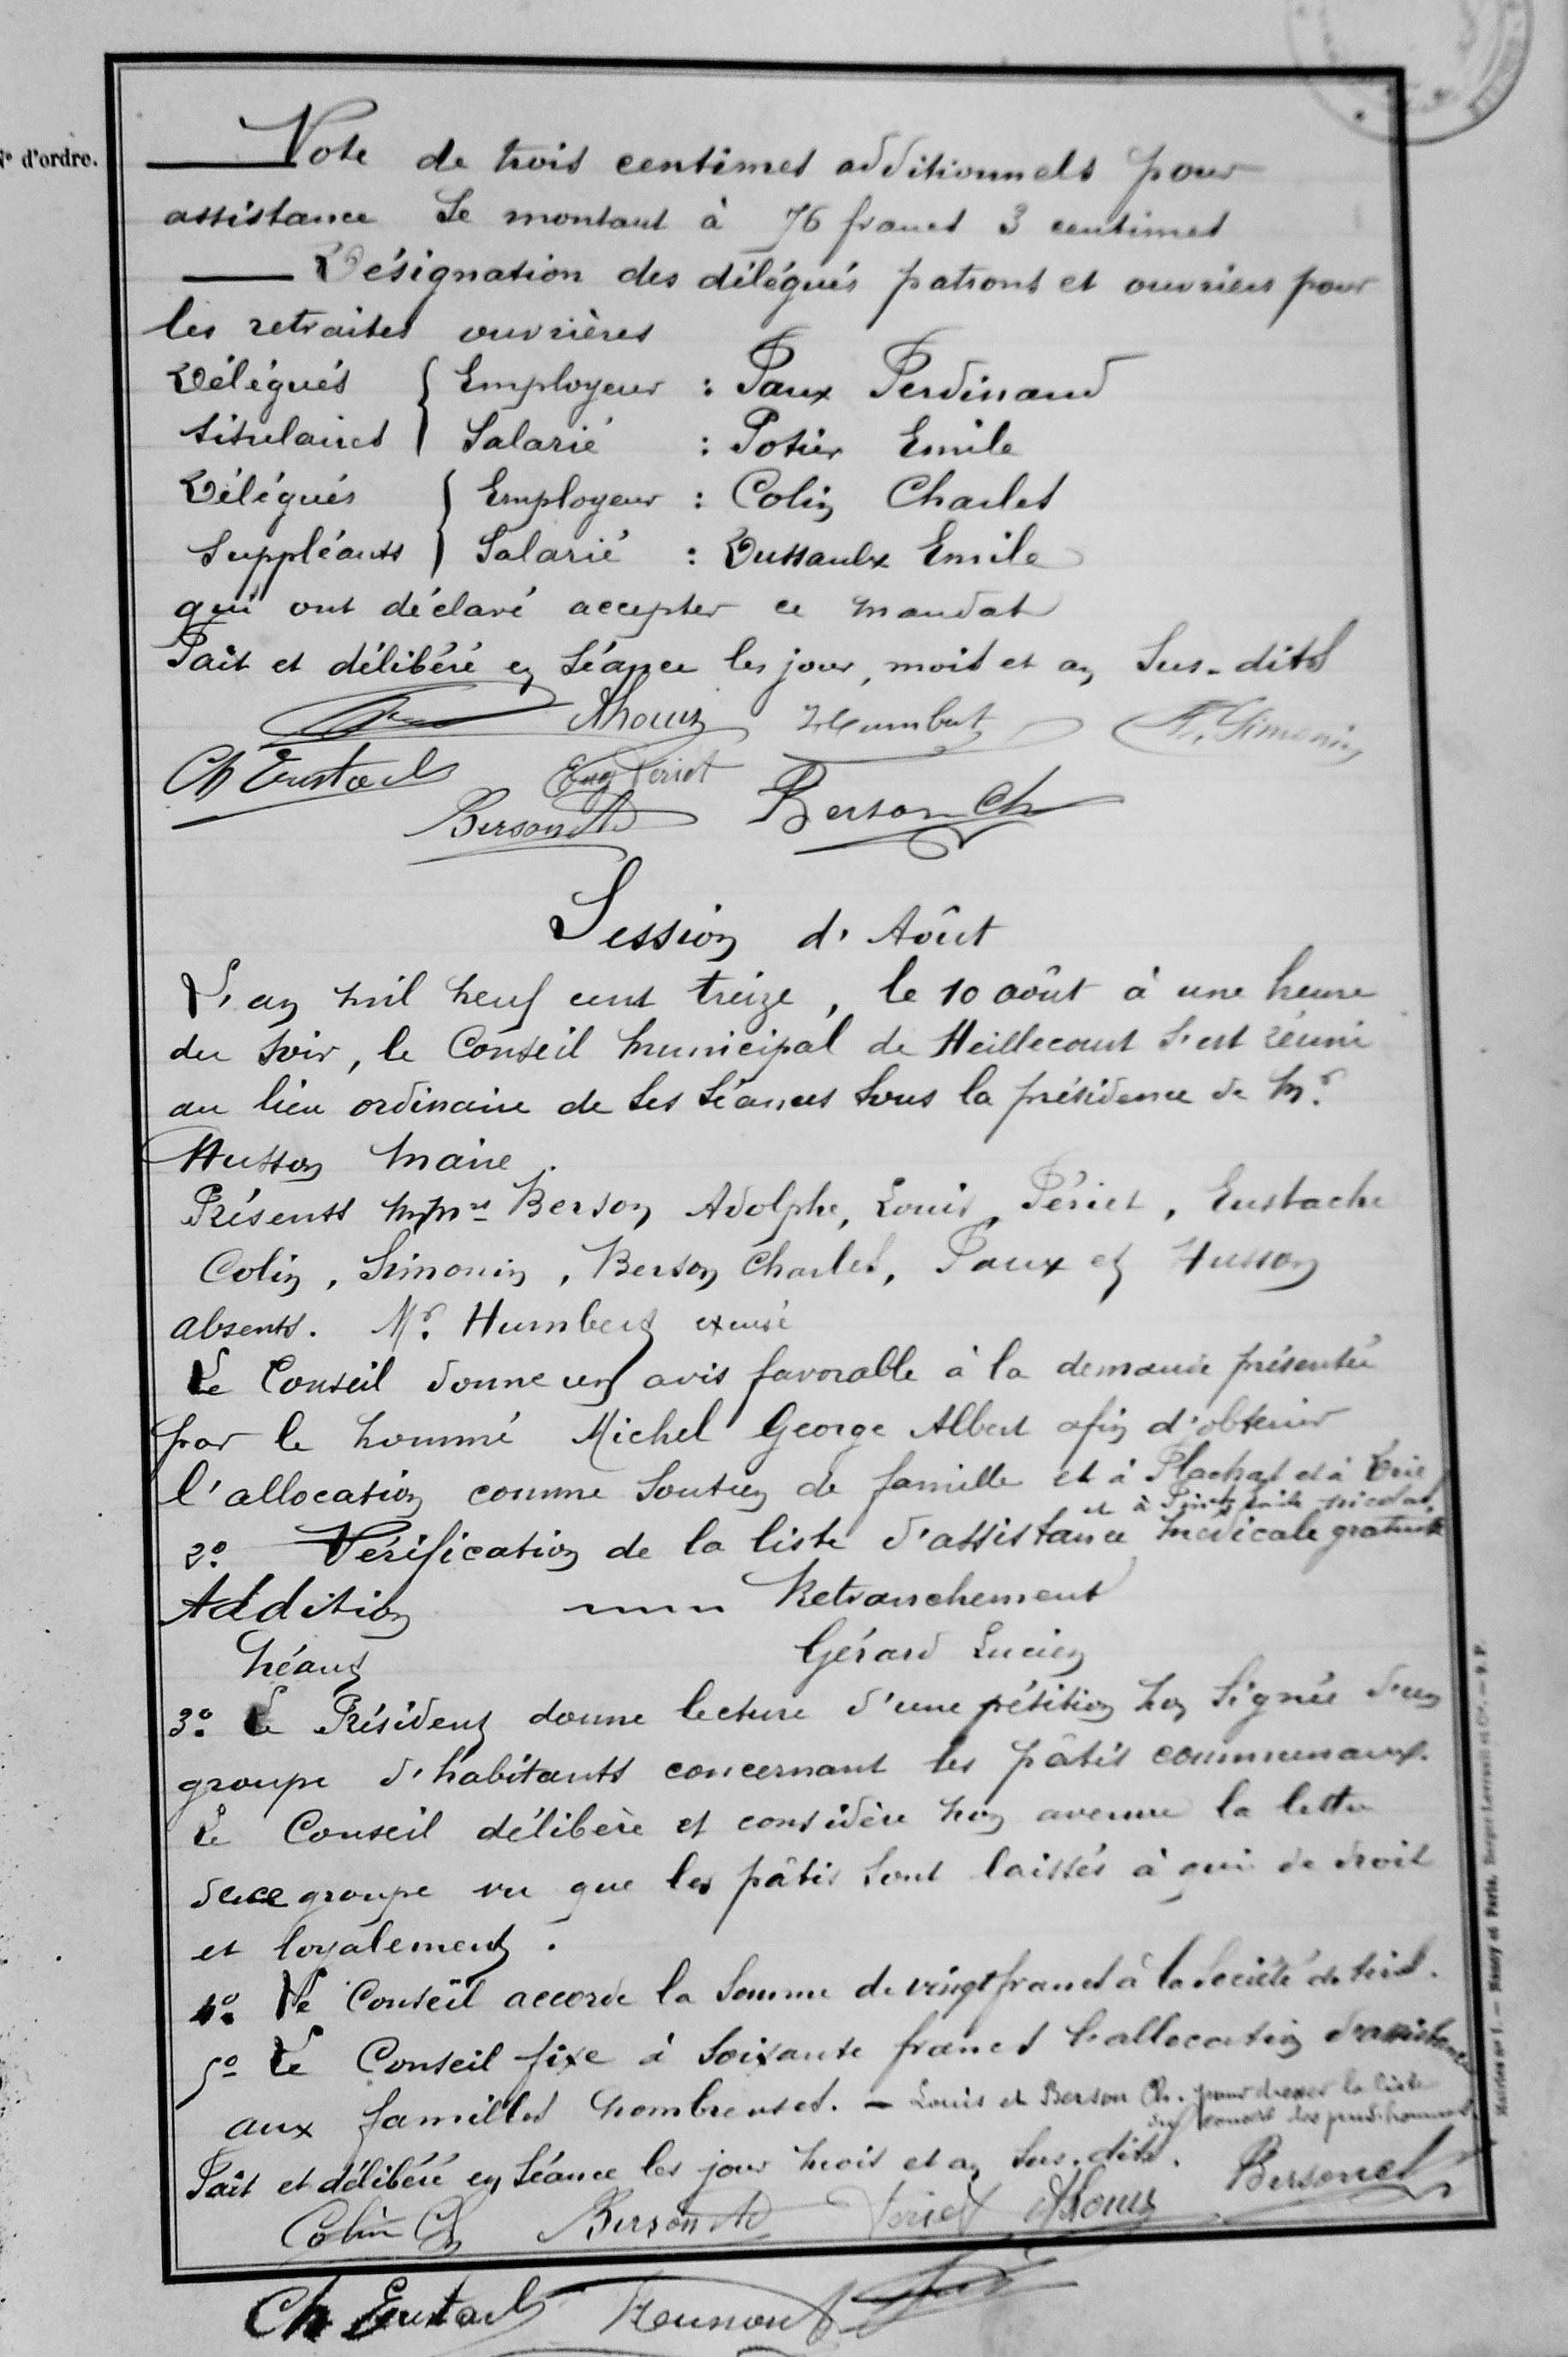 N° d'ordre.
Vote de trois centimes additionnels pour
assistance se montant à 76 francs 3 centimes
Désignation des délégués patrons et ouvriers pour
les retraites ouvrières
Délégués { Employeur : Faux Ferdinand
titulaires Salarié : Potier Emile
Délégués { Employeur : Colin Charles
suppléants Salarié : Dussaulx Emile
qui ont déclaré accepter ce mandat
Fait et délibéré en séance les jour, mois et an sus-dits
Humbert Simonin
Ch Eustache Eug Périet
Berson Ad Berson Ch
Session d'Août
L'an mil neuf cent treize, le 10 août à une heure
du soir, le Conseil municipal de Heillecourt s'est réuni
au lieu ordinaire de ses séances sous la présidence de Mr.
Husson maire.
Présents MMrs Berson Adolphe, Louis, Périet, Eustache
Colin, Simonin, Berson Charles, Faux et Husson
absents. Mr. Humbert excusé
Le Conseil donne un avis favorable à la demande présentée
par le nommé Michel George Albert afin d'obtenir
l'allocation comme soutien de famille et à Plachat et à
et à Emile Nicolas
2° Vérification de la liste d'assistance médicale gratuite
Addition Retranchement
Néant Gérard Lucien
3° Le Président donne lecture d'une pétition non signée d'un
groupe d'habitants concernant les pâtis communaux.
Le Conseil délibère et considère non avenue la lettre
de ce groupe vu que les pâtis sont laissés à qui de droit
et loyalement.
4° Le Conseil accorde la somme de vingt francs à la Société de tir.
5° Le Conseil fixe à soixante francs l'allocation d'assistance
aux familles nombreuses. - Louis et Berson Ch. pour dresser la liste
du conseil des prud'hommes.
Fait et délibéré en séance les jour mois et an sus-dits.
Colin Ch Berson Ad Periet Berson Ch
Ch Eustache
Mairies n° 1. — Nancy et Paris, Berger-Levrault et Cie. — 9. P.